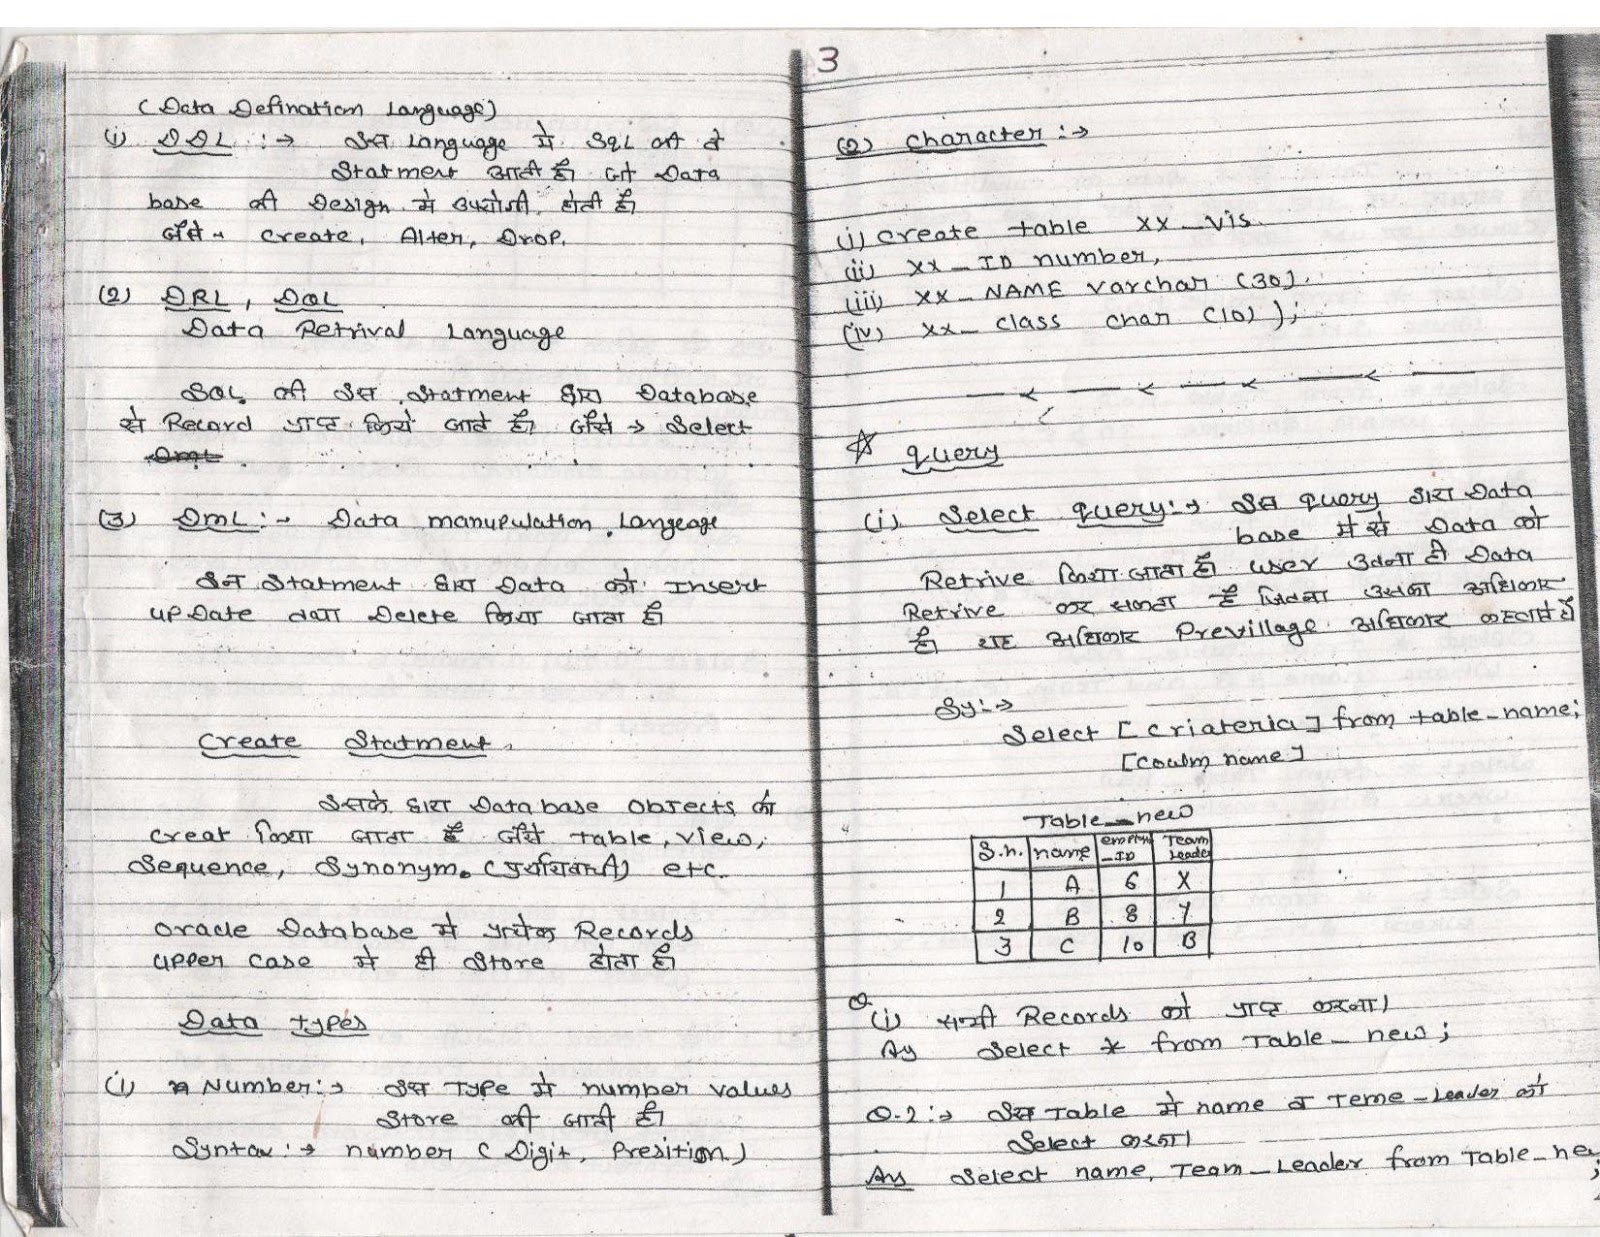 3
(Data Defination Language)
(i) DDL :→ इस Language मे SQL की वे
Statment आती है। जो Data
base की Design मे उपयोगी होती है।
जैसे- Create, Alter, Drop.
(2) DRL, DQL
Data Retrival Language
SQL की इस Statment द्वारा Database
से Record प्राप्त किये जाते है। जैसे → Select
(3) DmL :→ Data manupulation Langeage
इन Statment द्वारा Data को Insert
upDate तथा Delete किया जाता है।
Create Statment
इसके द्वारा Database objects को
creat किया जाता है जैसे Table, view,
Sequence, Synonym. (पर्यायवाची) etc.
oracle Database मे प्रत्येक Records
upper case मे ही Store होता है।
Data Types
(i) Number :→ इस Type मे number values
Store की जाती है।
Syntax :→ number ( Digit, Presition )
(2) character :→
(i) create table xx_vis
(ii) xx_ID number,
(iii) xx_NAME varchar (30).
(iv) xx_class char (10) );
☆ query
(i) Select query :→ इस query द्वारा Data
base मे से Data को
Retrive किया जाता है। user उतना ही Data
Retrive कर सकता है जितना उसका अधिकार
है। यह अधिकार Previllage अधिकार कहलाते है
Sy :→
Select [criateria] from table_name;
[coulm name]
Table_new
S.n. name Team
_ID Leader
1 A 6 X
2 B 8 Y
3 C 10 B
Q. (i) सभी Records को प्राप्त करना।
Ay Select * from Table_new ;
Q.2 :→ इस Table मे name व Teme_Leader को
Select करना।
Ans Select name, Team_Leader from Table_new
;